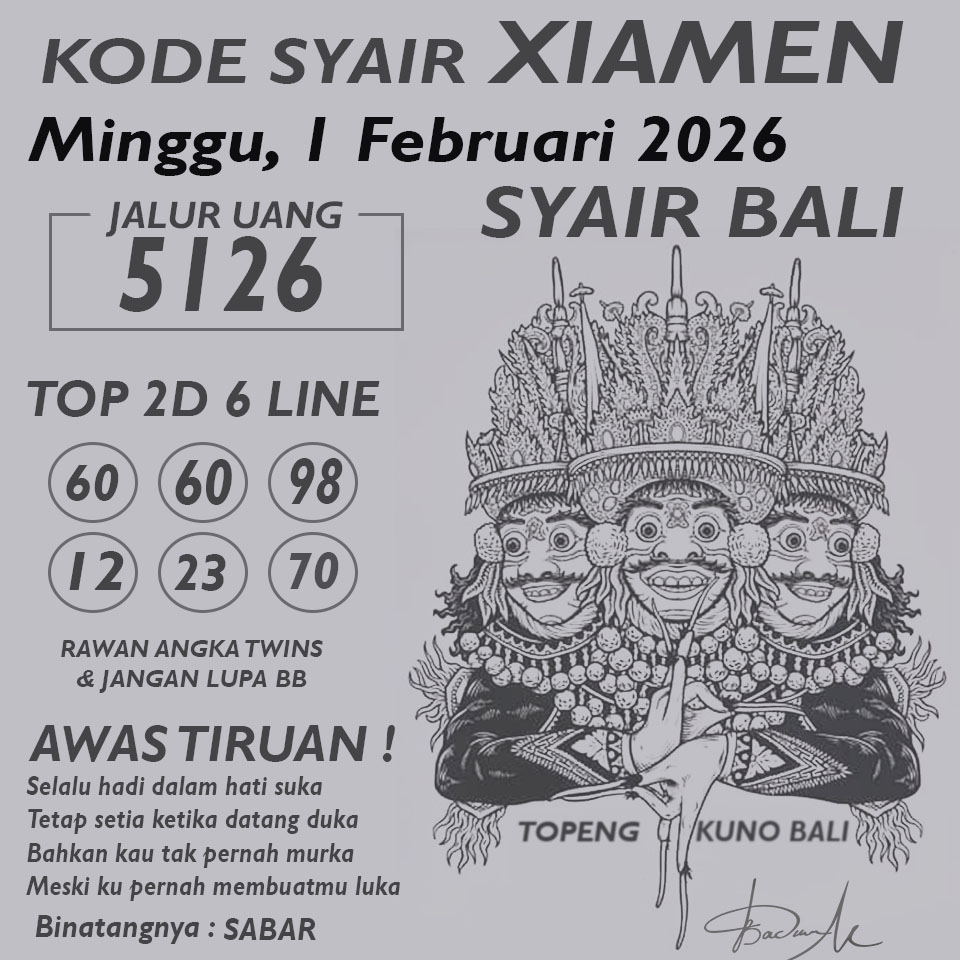 KODE SYAIR XIAMEN
Minggu, 1 Februari 2026
SYAIR BALI
JALUR UANG
5126
TOP 2D 6 LINE
60 60 98
12 23 70
RAWAN ANGKA TWINS
& JANGAN LUPA BB
AWAS TIRUAN !
Selalu hadi dalam hati suka
Tetap setia ketika datang duka
Bahkan kau tak pernah murka
Meski ku pernah membuatmu luka
Binatangnya : SABAR
TOPENG KUNO BALI